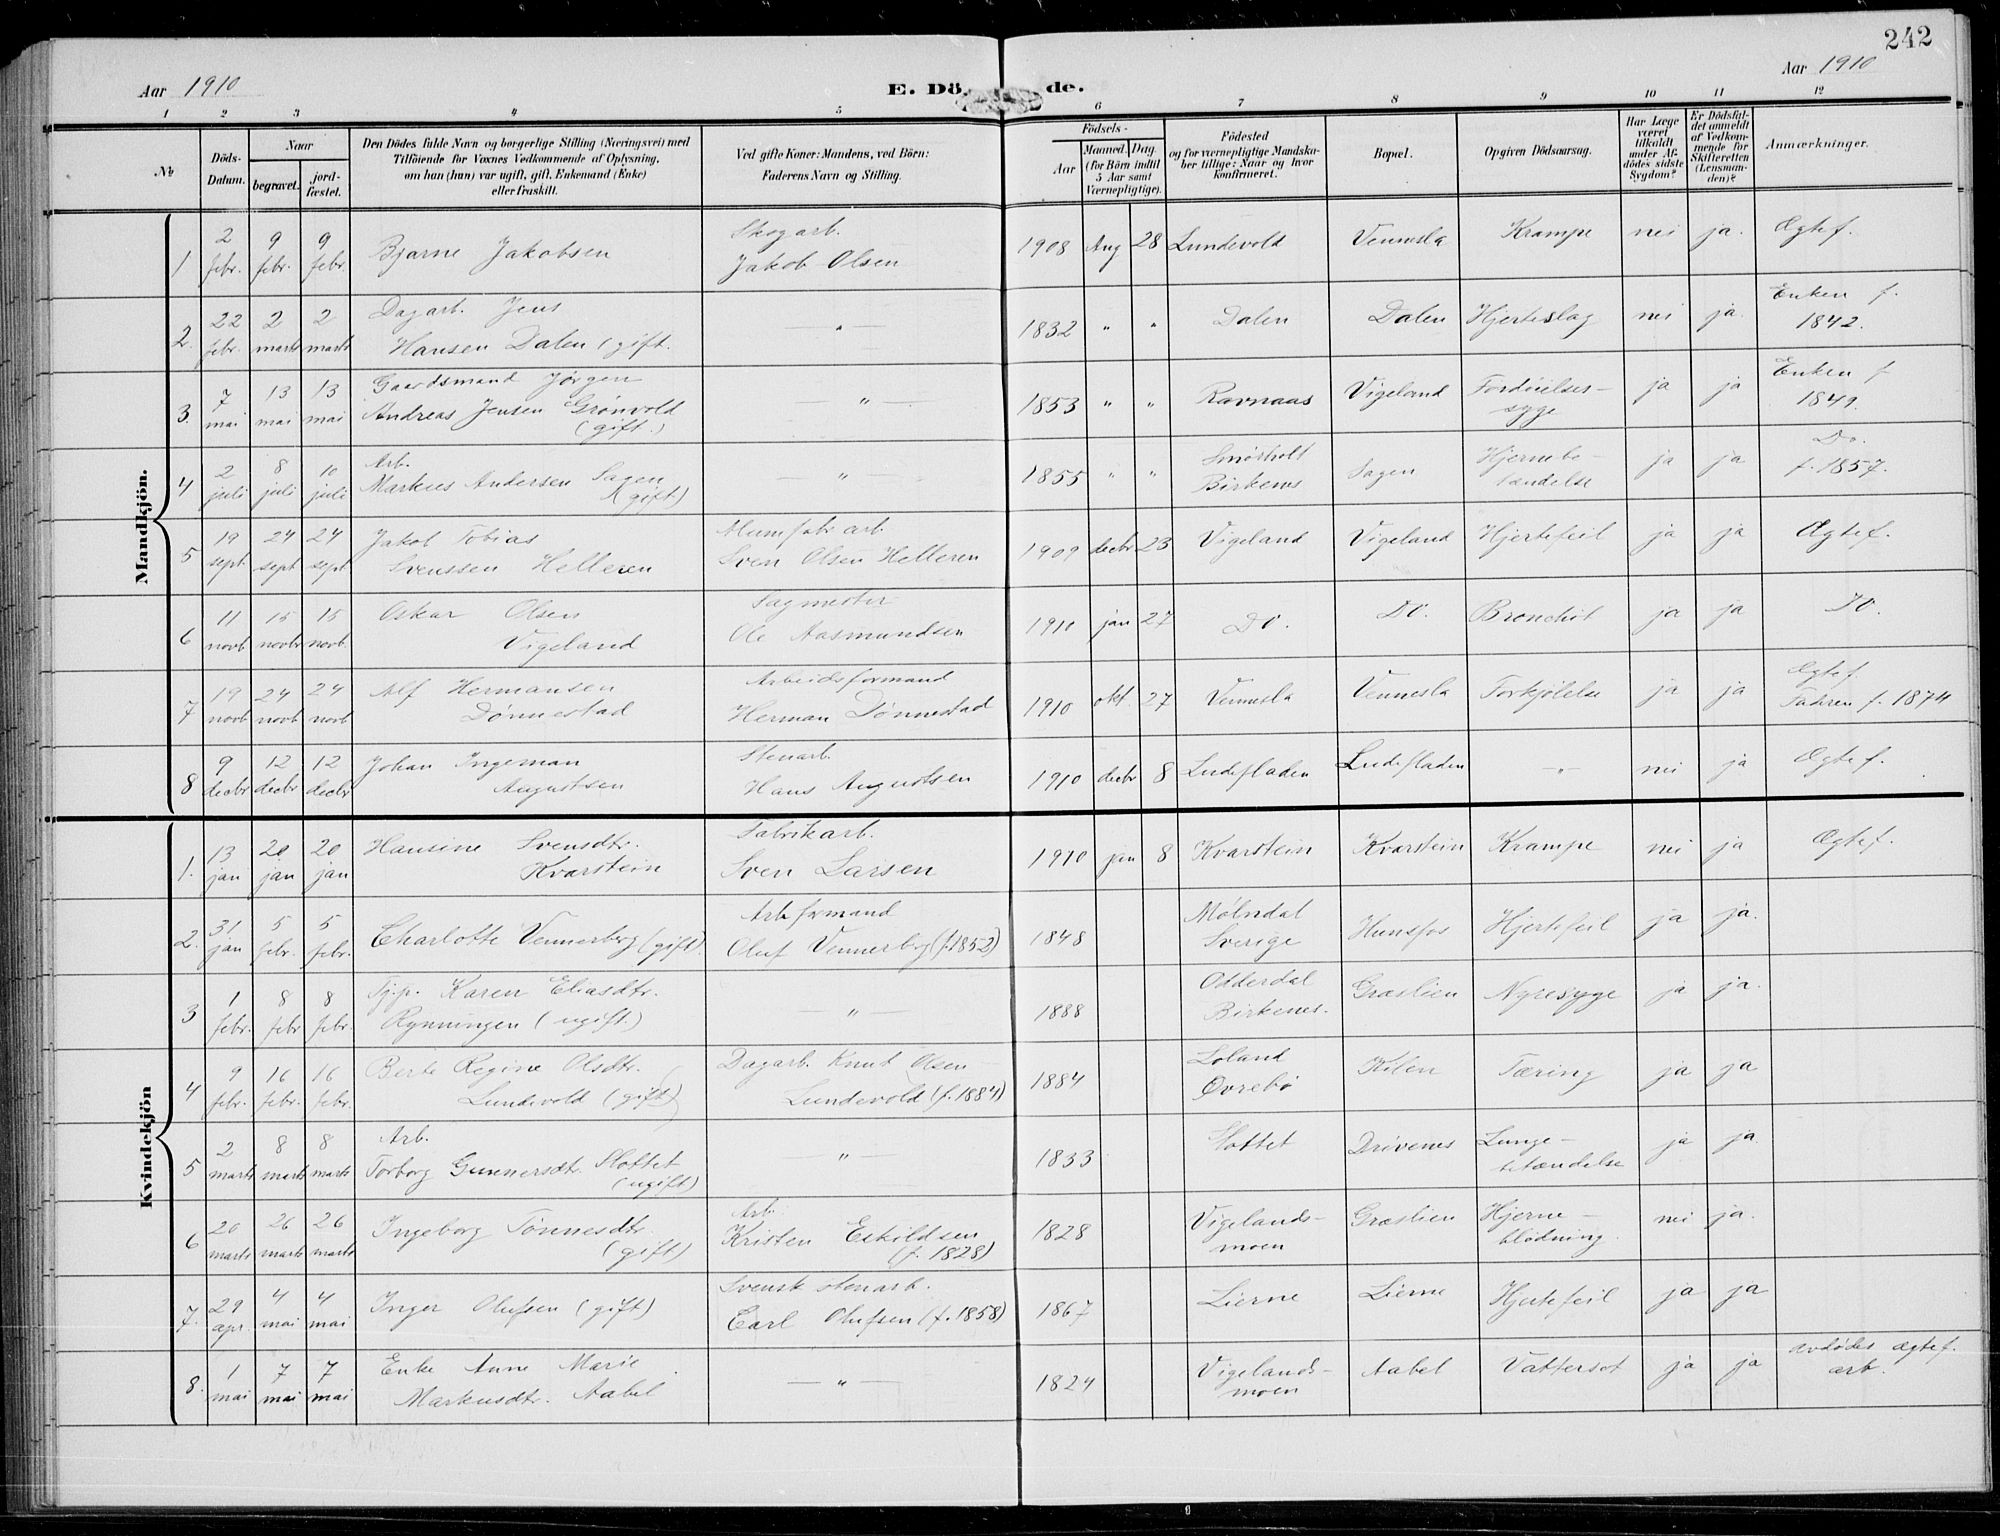 242
Aar 1910
E. Dö de.
Aar 1910
1 2 3 4 5 6 7 8 9 10 11 12
№
Döds-Datum.
Naar
begravet.
jordfæstet.
Den Dödes fulde Navn og borgerlige Stilling (Næringsvei) med
Tilföiende for Voxnes Vedkommende af Oplysning,
om han (hun) var ugift, gift, Enkemand (Enke)
eller fraskilt.
Ved gifte Koner: Mandens, ved Börn:
Faderens Navn og Stilling.
Födsels-
Aar
Maaned. Dag.
(for Börn indtil
5 Aar samt
Værnepligtige).
Födested
og for værnepligtige Mandskaber tillige: Naar og hvor
konfirmeret.
Bopæl.
Opgiven Dödsaarsag.
Har Læge
været
tilkaldt
under Afdödes sidste
Sygdom?
Er Dödsfaldet anmeldt
af Vedkommende for
Skifteretten
(Lensmanden)?
Anmærkninger.
Mandkjön.
1 2 febr. 9 febr. 9 febr. Bjarne Jakobsen Skogarb. Jakob Olsen 1908 Aug 28 Lundevold Vennesla Krampe nei ja. Ægtef.
2. 22 febr. 2 marts 2 marts Dagarb. Jens Hansen Dalen (gift. — " — 1832 " " Dalen Dalen Hjerteslag nei ja. Enken f. 1842.
3. 7 mai 13 mai 13 mai Gaardsmand Jørgen Andreas Jensen Grønvold (gift.) — " — 1853 " " Ravnaas Vigeland Fordøielsessyge ja ja Enken f 1849.
4 2 juli 8 juli 10 juli Arb. Markus Andersen Sagen (gift) — " — 1855 " " Smørholt Birkenes Sagen Hjernebetændelse ja ja Do. f. 1857.
5 19 sept 24 sept 24 sept Jakob Tobias Svenssen Helleren Alumfabr arb. Sven Olsen Helleren 1909 decbr 23 Vigeland Vigeland Hjertefeil ja ja Ægtef.
6 11 novb 15 novbr 15 novb. Oskar Olsen Vigeland Sagmester Ole Aasmundsen 1910 jan 27 Do. Do. Bronchit ja ja Do.
7 19 novb 24 novb 24 novb Alf Hermansen Dønnestad Arbeidsformand Herman Dønnestad 1910 okt. 27 Vennesla Vennesla Forkjølelse ja ja Ægtef. Fadren f. 1874
8 9 decbr 12 decbr 12 decbr Johan Ingeman Augustsen Stenarb. Hans Augustsen 1910 decbr 8 Ludefladen Ludefladen — " — nei ja Ægtef.
Kvindekjön
1. 13 jan 20 jan 20 jan Hansine Svensdtr. Kvarstein Fabrikarb. Sven Larsen 1910 jan 8 Kvarstein Kvarstein Krampe nei ja Ægtef.
2. 31 jan 5 febr. 5 febr. Charlotte Vennerberg (gift) Arb formand Oluf Vennerberg (f. 1852) 1848 Mølndal Sverige Hunsfos Hjertefeil ja ja.
3 1 febr. 8 febr 8 febr. Tj.p. Karen Eliasdtr. Rynningen (ugift) — " — 1888 Odderdal Birkenes. Græslien Nyresyge ja ja.
4 9 febr. 16 febr. 16 febr. Berte Regine Olsdtr. Lundevold (gift) Dagarb. Knut Olsen Lundevold (f. 1884) 1884 Loland Øvrebø Kilen Tæring ja ja
5 2 marts 8 marts 8 marts Arb. Torborg Gunnersdtr. Slottet (ugift) — " — 1833 Slottet Drivenes Lungebetændelse ja ja
6 20 marts 26 marts 26 marts Ingeborg Tønnesdtr. (gift) Arb. Kristen Eskildsen (f. 1828) 1828 Vigelandsmoen Græslien Hjerneblødning. nei ja.
7. 29 apr. 4 mai 4 mai Inger Olufsen (gift) Svensk stenarb. Carl Olufsen (f. 1858) 1867 Lierne Lierne Hjertefeil ja ja
8. 1 mai 7 mai 7 mai Enke Anne Marie Markusdtr. Aabel — " — 1824 Vigelandsmoen Aabel Vattersot ja ja avdødes ægtef. arb.